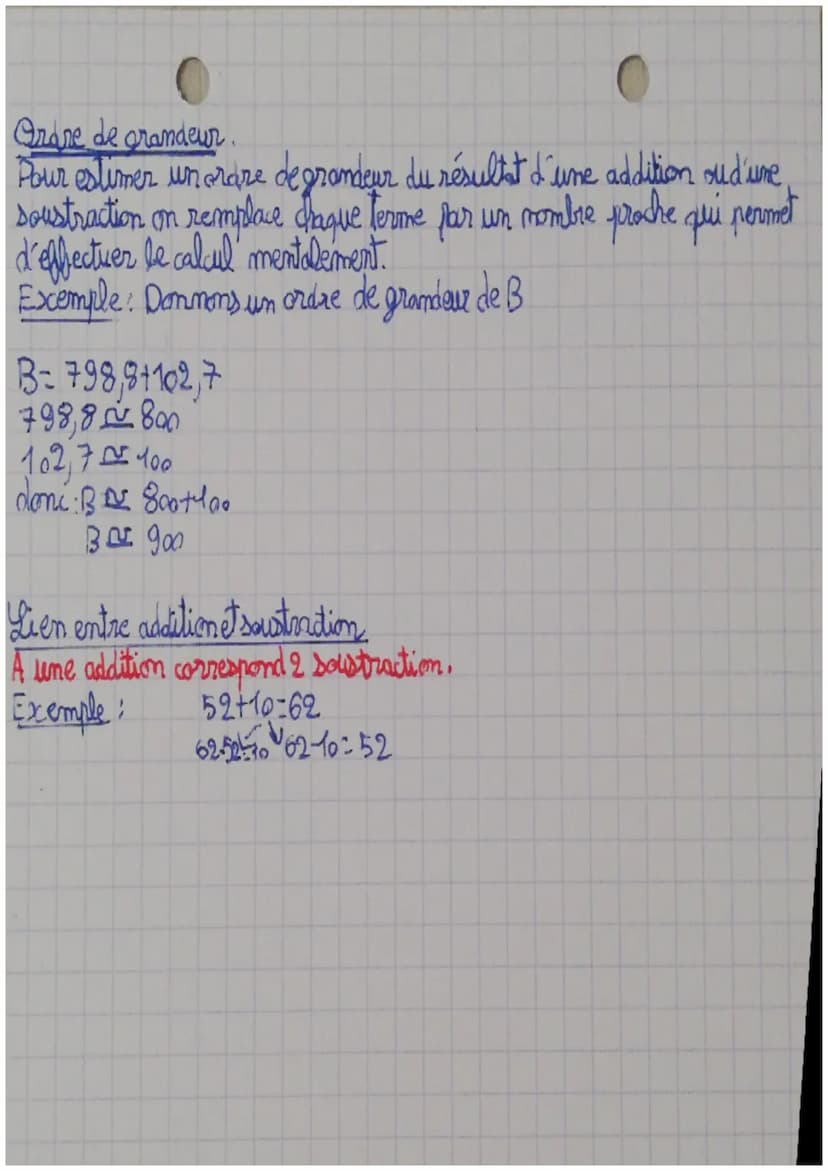 Ordre de grandeur.
Pour estimer un ordre de grandeur du résultat d'une addition ou d'une
soustraction on remplace chaque terme par un nombre proche qui permet
d'effectuer le calcul mentalement.
Exemple: Donnons un ordre de grandeur de B
B= 798,8+102,7
798,8 ≃ 800
102,7 ≃ 100
donc: B ≃ 800+100
B ≃ 900
Lien entre addition et soustraction
A une addition correspond 2 soustraction.
Exemple : 52+10=62
62-52=10 62-10=52